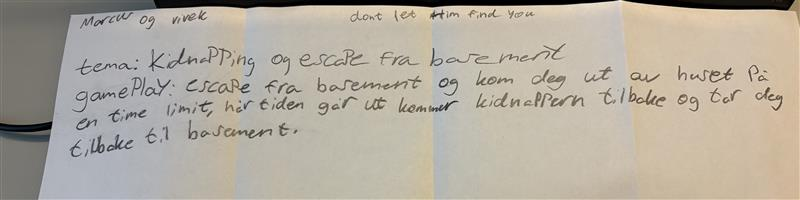 Marcus og vivek
dont let him find you
tema: kidnapping og escape fra basement
gameplay: escape fra basement og kom deg ut av huset på
en time limit, når tiden går ut kommer kidnappern tilbake og tar deg
tilbake til basement.